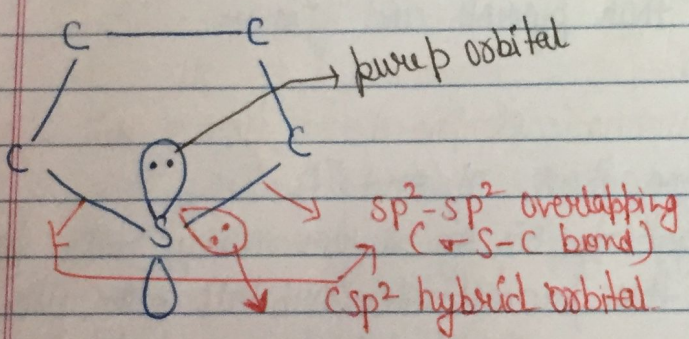 C C
pure p orbital
C C
sp²-sp² overlapping
S (σ-S-C bond)
(sp² hybrid orbital